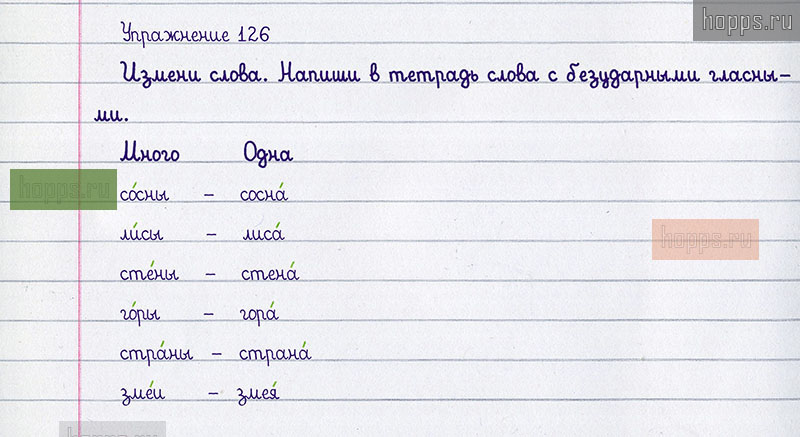 hopps.ru
Упражнение 126
Измени слова. Напиши в тетрадь слова с безударными гласны-
ми.
Много Одна
hopps.ru
со́сны – сосна́
ли́сы – лиса́
hopps.ru
сте́ны – стена́
го́ры – гора́
стра́ны – страна́
зме́и – змея́
hopps.ru